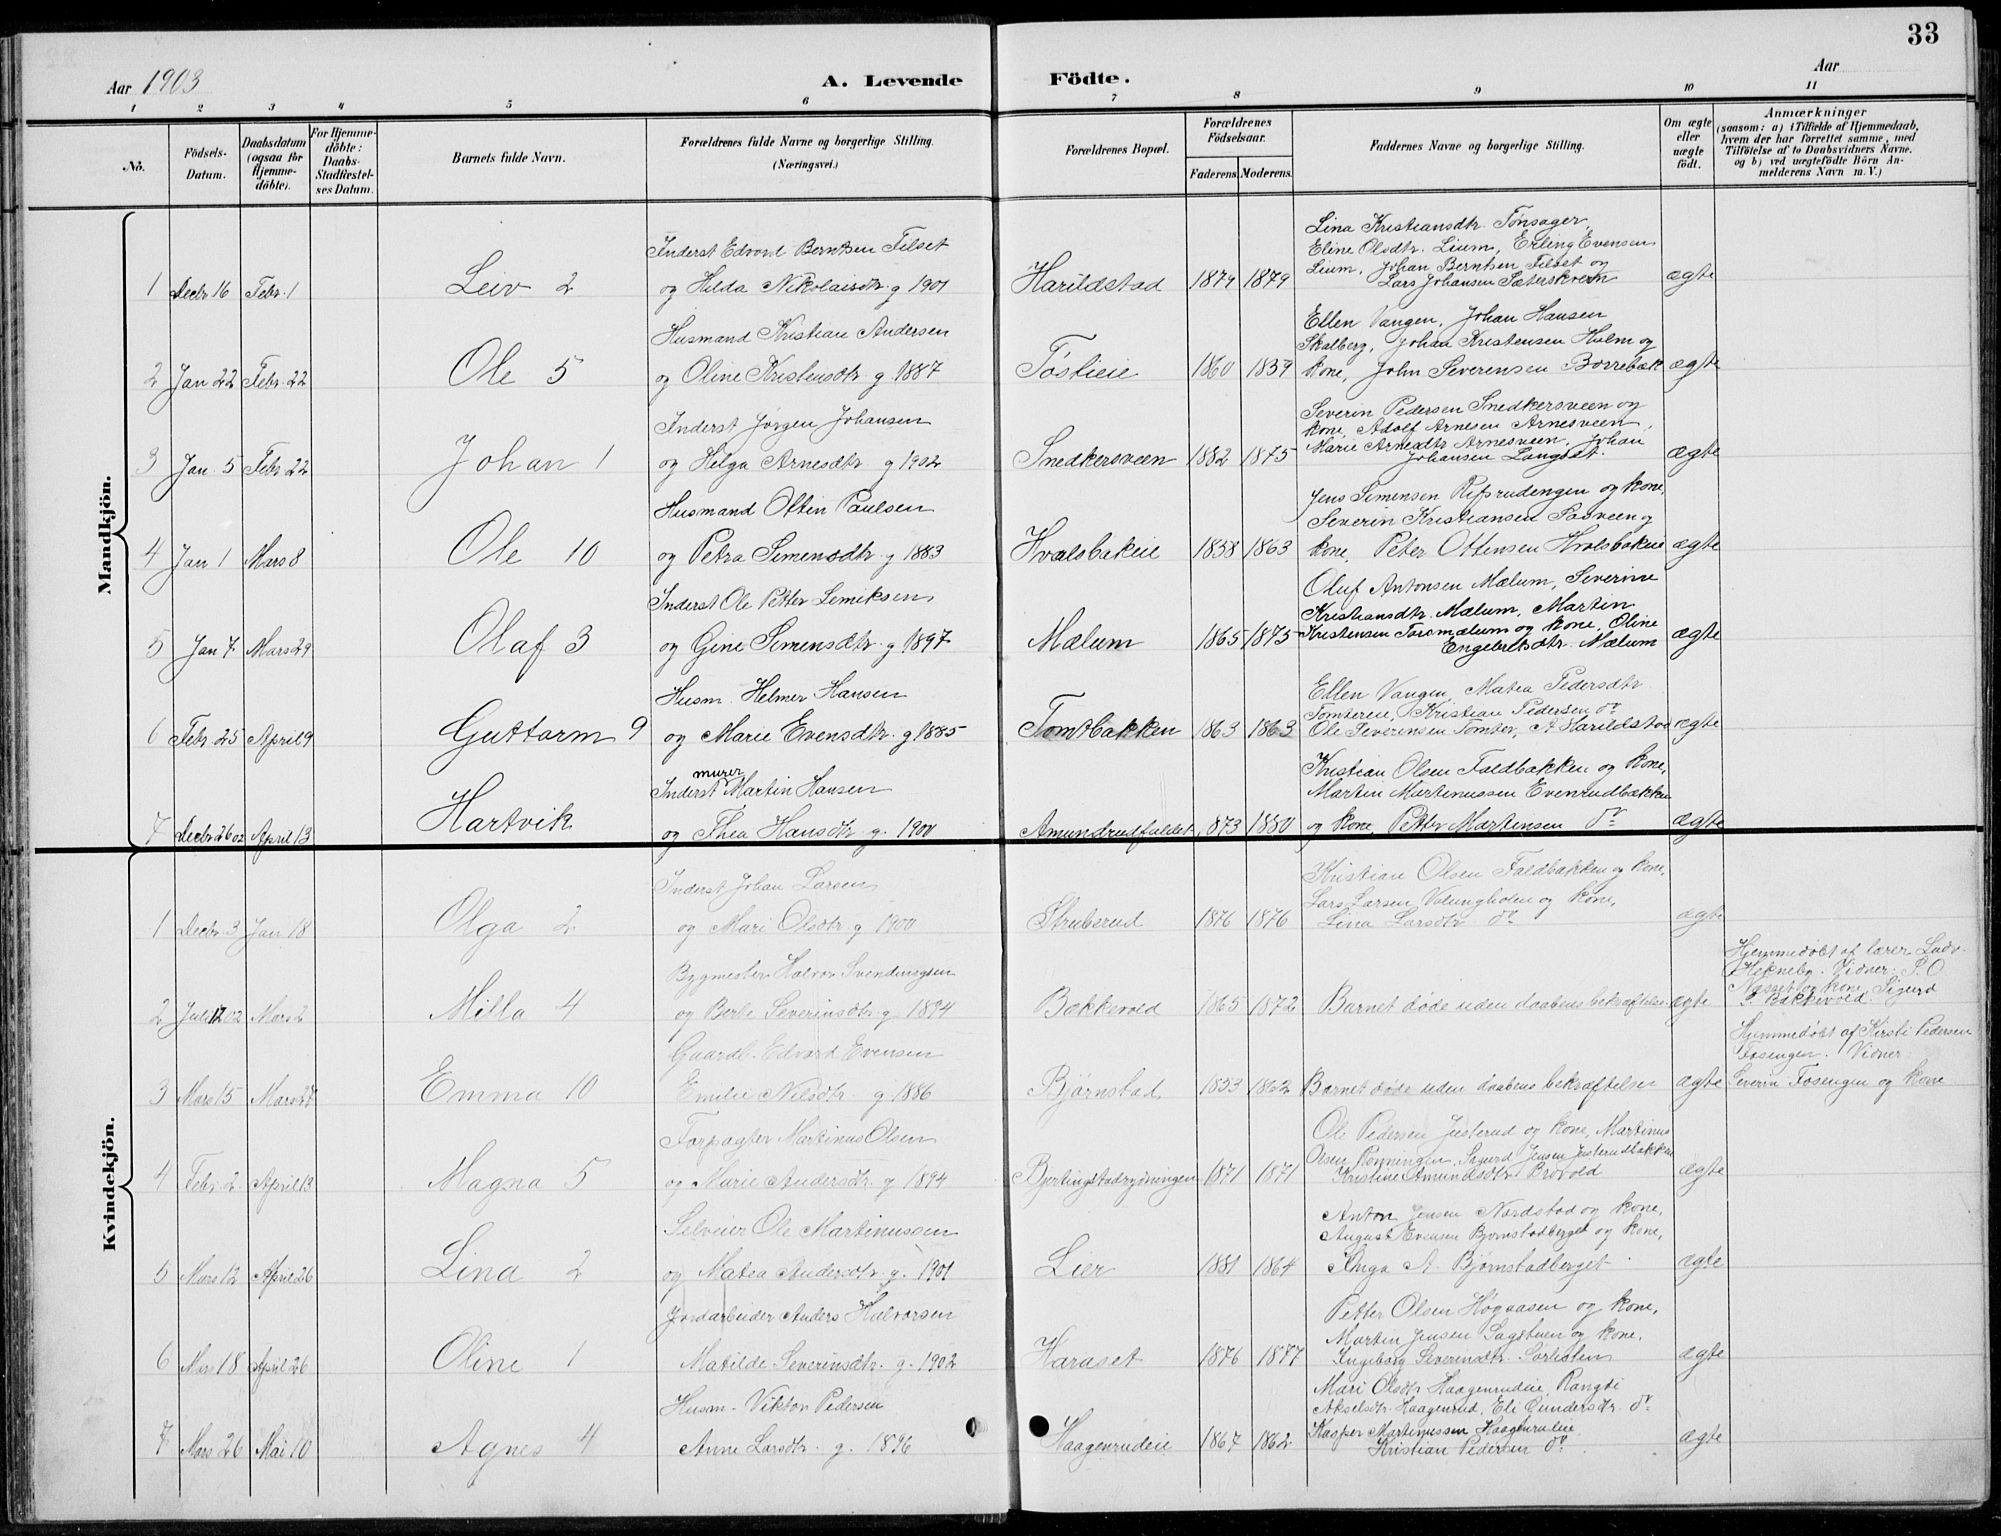 33
Aar 1903
A. Levende Födte.
Aar
1 2 3 4 5 6 7 8 9 10 11
No.
Födsels-
Datum.
Daabsdatum
(ogsaa for
Hjemme-
döbte).
For Hjemme-
döbte:
Daabs-
Stadfæstel-
ses Datum.
Barnets fulde Navn.
Forældrenes fulde Navne og borgerlige Stilling.
(Næringsvei.)
Forældrenes Bopæl.
Forældrenes
Födselsaar.
Faderens. Moderens.
Faddernes Navne og borgerlige Stilling.
Om ægte
eller
uægte
födt.
Anmærkninger
(saasom: a) i Tilfælde af Hjemmedaab,
hvem der har forrettet samme, med
Tilföielse af to Daabsvidners Navne.
og b) ved uægtefödte Börn An-
melderens Navn m. V.)
Mandkjön.
Inderst Edvard Berntsen Tilset
Lina Kristiansdtr. Tønsager,
Eline Olsdtr. Lium, Erling Evensen
Lium, Johan Berntsen Tilset og
1 Decbr 16 Febr. 1 Leiv 2 og Hilda Nikolaisdtr. g 1901 Harildstad 1879 1879 Lars Johansen Sæterskvern ægte
Husmand Kristian Andersen
Ellen Vangen, Johan Hansen
Skalberg, Johan Kristensen Holm og
2 Jan 22 Febr. 22 Ole 5 og Oline Kristensdtr g 1887 Tøstieie 1860 1859 kone, John Severensen Borrebæk ægte
Inderst Jørgen Johansen
Severin Pedersen Snedkersveen og
kone, Adolf Arnesen Arnesveen,
Marie Arnesdtr Arnesveen, Johan
3 Jan. 5 Febr 22 Johan 1 og Helga Arnesdtr g 1902 Snedkersveen 1882 1875 Johansen Langset. ægte
Husmand Ottin Paulsen
Jens Simensen Rifsrudengen og kone,
Severin Kristiansen Paaveen og
4 Jan 1 Mars 8 Ole 10 og Petra Simensdtr g 1883 Hvalsbakeie 1858 1863 kone, Peter Ottensen Hvalsbakeie ægte
Inderst Ole Petter Lemiksen
Oluf Antonsen Mælum, Severine
Kristiansdtr. Mælum, Martin
Kristensen Toromælum og kone, Oline
5 Jan 7 Mars 29 Olaf 3 og Gine Simensdtr. g 1897 Mælum 1865 1875 Engebretsdtr. Mælum ægte
Husm. Helmer Hansen
Ellen Vangen, Matea Pedersdtr
Tomtereie, Kristian Pedersen do
6 Febr 25 April 9 Guttorm 9 og Marie Evensdtr. g 1885 Tomtbakken 1863 1863 Ole Severensen Tomter, A Harildstad ægte
Inderst murer Martin Hansen
Kristian Olsen Faldbakken og kone,
Martin Martinussen Evenrudbakken
7 Decbr 26 02 April 13 Hartvik og Thea Hansdtr. g. 1900 Amundrudfaldet 1873 1880 og kone, Petter Martensen do ægte
Kvindekjön.
Inderst Johan Larsen
Kristian Olsen Faldbakken og kone,
Lars Larsen Valungholen og kone,
1 Decbr 3 Jan 18 Olga 2 og Mari Olsdtr g 1900 Strubsrud 1876 1876 Lina Larsdtr do ægte
Bygmester Halvor Svendungsen
Hjemmedøbt af lærer Ludv.
Hekneby. Vidner: P.O
Nasset og kone, Sigurd
2 Juli 12 02 Mars 2 Milla 4 og Berte Severinsdtr g. 1894 Bækkevold 1865 1872 Barnet døde uden daabens bekræftelse. ægte P. Bækkevold
Gaardb. Edvard Evensen
Hjemmedøbt af Kirsti Pedersen
Fosengen. Vidner:
3 Mars 15 Mars 27 Emma 10 Emilie Nilsdtr. g 1886 Bjørnstad 1853 1862 Barnet døde uden daabens bekræftelse ægte Severin Fosengen og kone
Forpagter Martinus Olsen
Ole Pedersen Justerud og kone, Martinus
Olsen Rønningen, Sigurd Jensen Justerudbakken
4 Febr. 2 April 13 Magna 5 og Marie Andersdtr. g 1894 Bjertingstadrydningen 1871 1871 Kristine Amundsdtr. Brovold ægte
Selveier Ole Martinussen
Anton Jensen Nordstad og kone,
August Evensen Bjørnstadberget og kone,
5 Mars 12 April 26 Lina 2 og Matea Andersdtr. g. 1901 Lier 1881 1864 Inga A. Bjørnstadberget ægte
Jordarbeider Anders Halvorsen
Petter Olsen Høgaasen og kone,
Martin Jensen Sagstuen og kone,
6 Mars 18 April 26 Oline 1 Matilde Severinsdtr. g. 1902 Haraset 1876 1877 Ingeborg Severensdtr. Sørlisten ægte
Husm. Viktor Pedersen
Mari Olsdtr Haagenrudeie, Rangdi
Akselsdtr. Haagenrud, Eli Gundersdtr. do
Kasper Martinussen Haagenrudeie
7 Mars 26 Mai 10 Agnes 4 Anne Larsdtr. g. 1896 Haagenrudeie 1867 1862 Kristian Pedersen do ægte